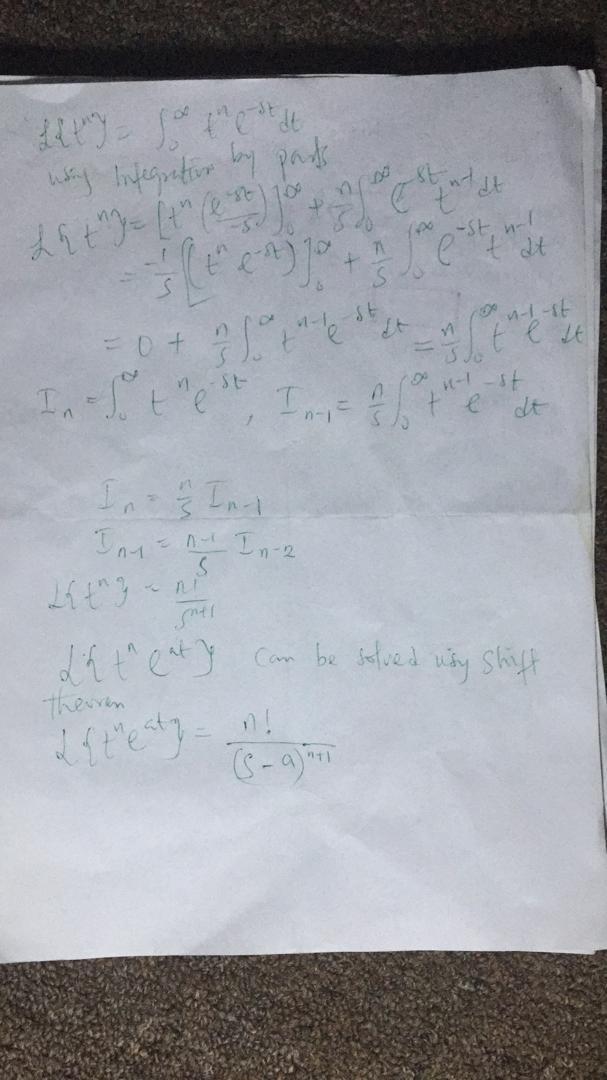 L{tⁿ} = ∫₀^∞ tⁿ e^{-st} dt
using Integration by parts
L{tⁿ} = [tⁿ (e^{-st}/-s)]₀^∞ + n/s ∫₀^∞ e^{-st} t^{n-1} dt
= -1/s [(tⁿ e^{-st})]₀^∞ + n/s ∫₀^∞ e^{-st} t^{n-1} dt
= 0 + n/s ∫₀^∞ t^{n-1} e^{-st} dt = n/s ∫₀^∞ t^{n-1} e^{-st} dt
Iₙ = ∫₀^∞ tⁿ e^{-st}, I_{n-1} = n/s ∫₀^∞ t^{n-1} e^{-st} dt
Iₙ = n/s I_{n-1}
I_{n-1} = n-1/s I_{n-2}
L{tⁿ} = n!/s^{n+1}
L{tⁿ e^{at}} can be solved using shift
theorem
L{tⁿ e^{at}} = n!/(s-a)^{n+1}